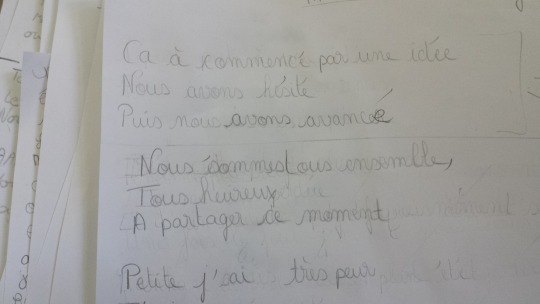 Ca à commencé par une idée
Nous avons hésité
Puis nous avons avancée
Nous sommes tous ensemble,
Tous heureux
A partager ce moment
Petite j'ai très peur